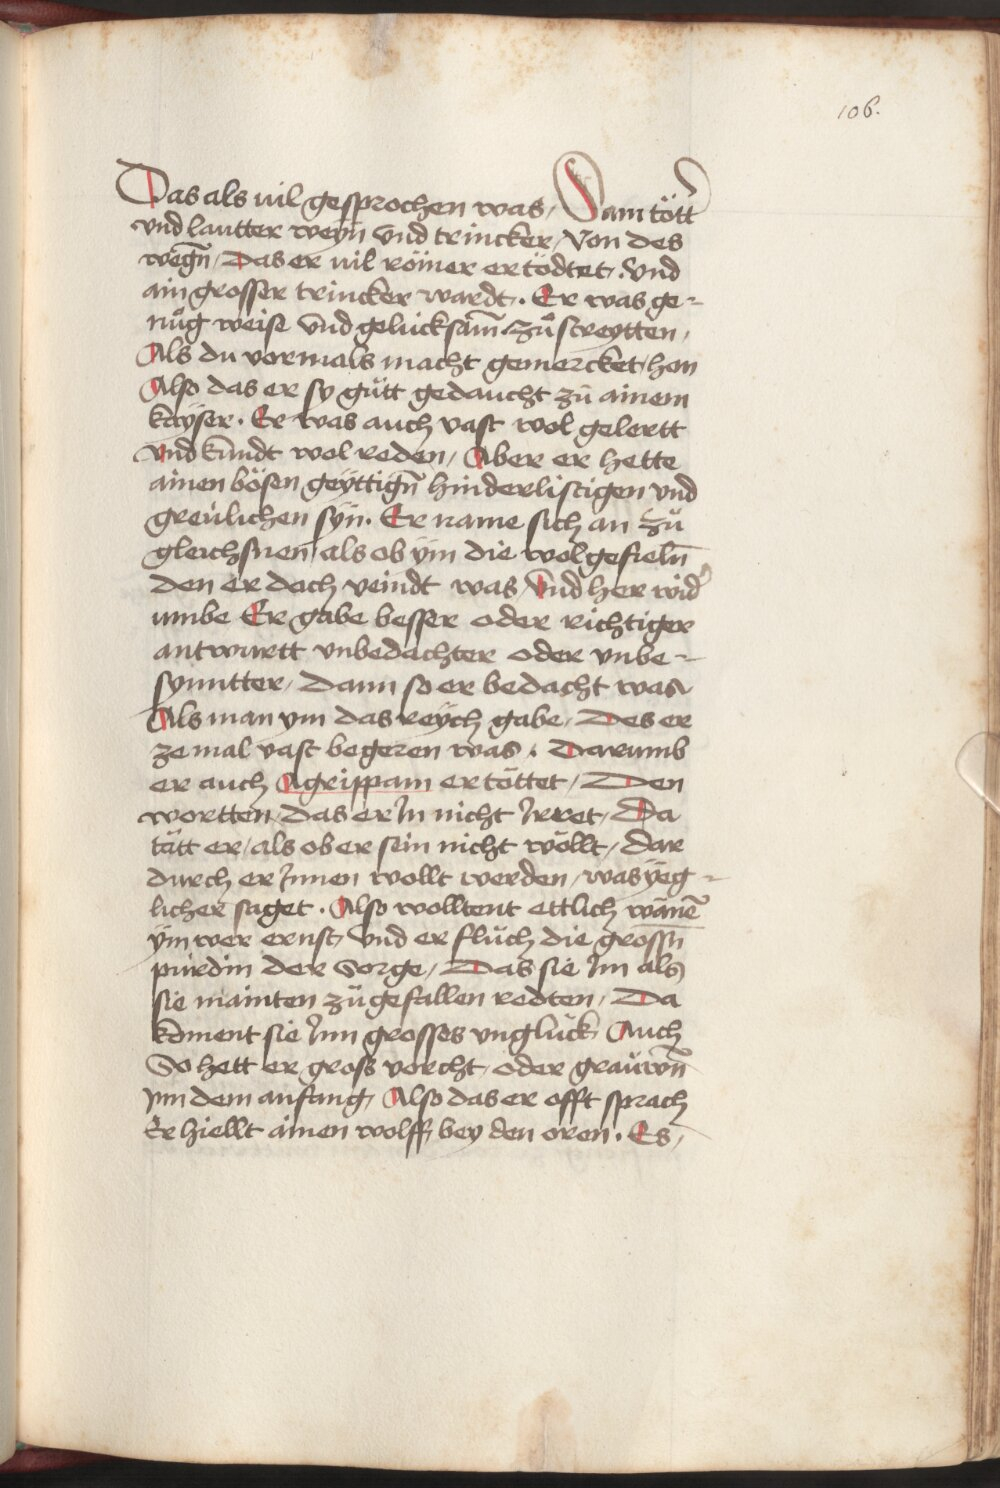 106.
Das als uil gesprochen was / Sam tött
vnd lautter weyn vnd trincker / Von des
wegñ / Das er uil römer ertödtet. vnd
ain grosser trincker wardt. Er was ge-
nůg weise vnd gelücksam̄ zů streytten /
Als du vormals macht gemercket hon
Also das er sy gůtt gedaucht zů ainem
kayser. Er was auch vast wol gelertt
vnd kundt wol reden / Aber er hette
ainen bösen geyttigñ hinderlistigen vnd
greülichen syn. Er name sich an zů
gleichsnen / als ob ÿm die wolgefielñ
den er doch veindt was / vnd her wid͛
umbe Er gabe besser oder richtiger
antwurtt vnbedachter oder vnbe-
synntter / Dann so er bedacht was
Als man ym das reÿch gabe / Des er
ze mal vast begeren was. Darumb
er auch Agrippam ertöttet / Den
wortten / das er Jn nicht Jrret / Da
tätt er / als ob er sein nicht wöllt / dar
durch er Jnnen wollt werden / was ÿeg-
licher saget. Also wolltent ettlich wänē
ÿm wer ernst / vnd er flüch die grossñ
pürdin der sorge / Das sie Jm als
sie mainten zů gefallen redten / Da
koment sie Jnn grosses vnglück / Auch
So hett er gross vorcht / oder grauwñ
ym dem anfang / Also das er offt sprach
Er hiellt ainen wolff bey den oren. Es /